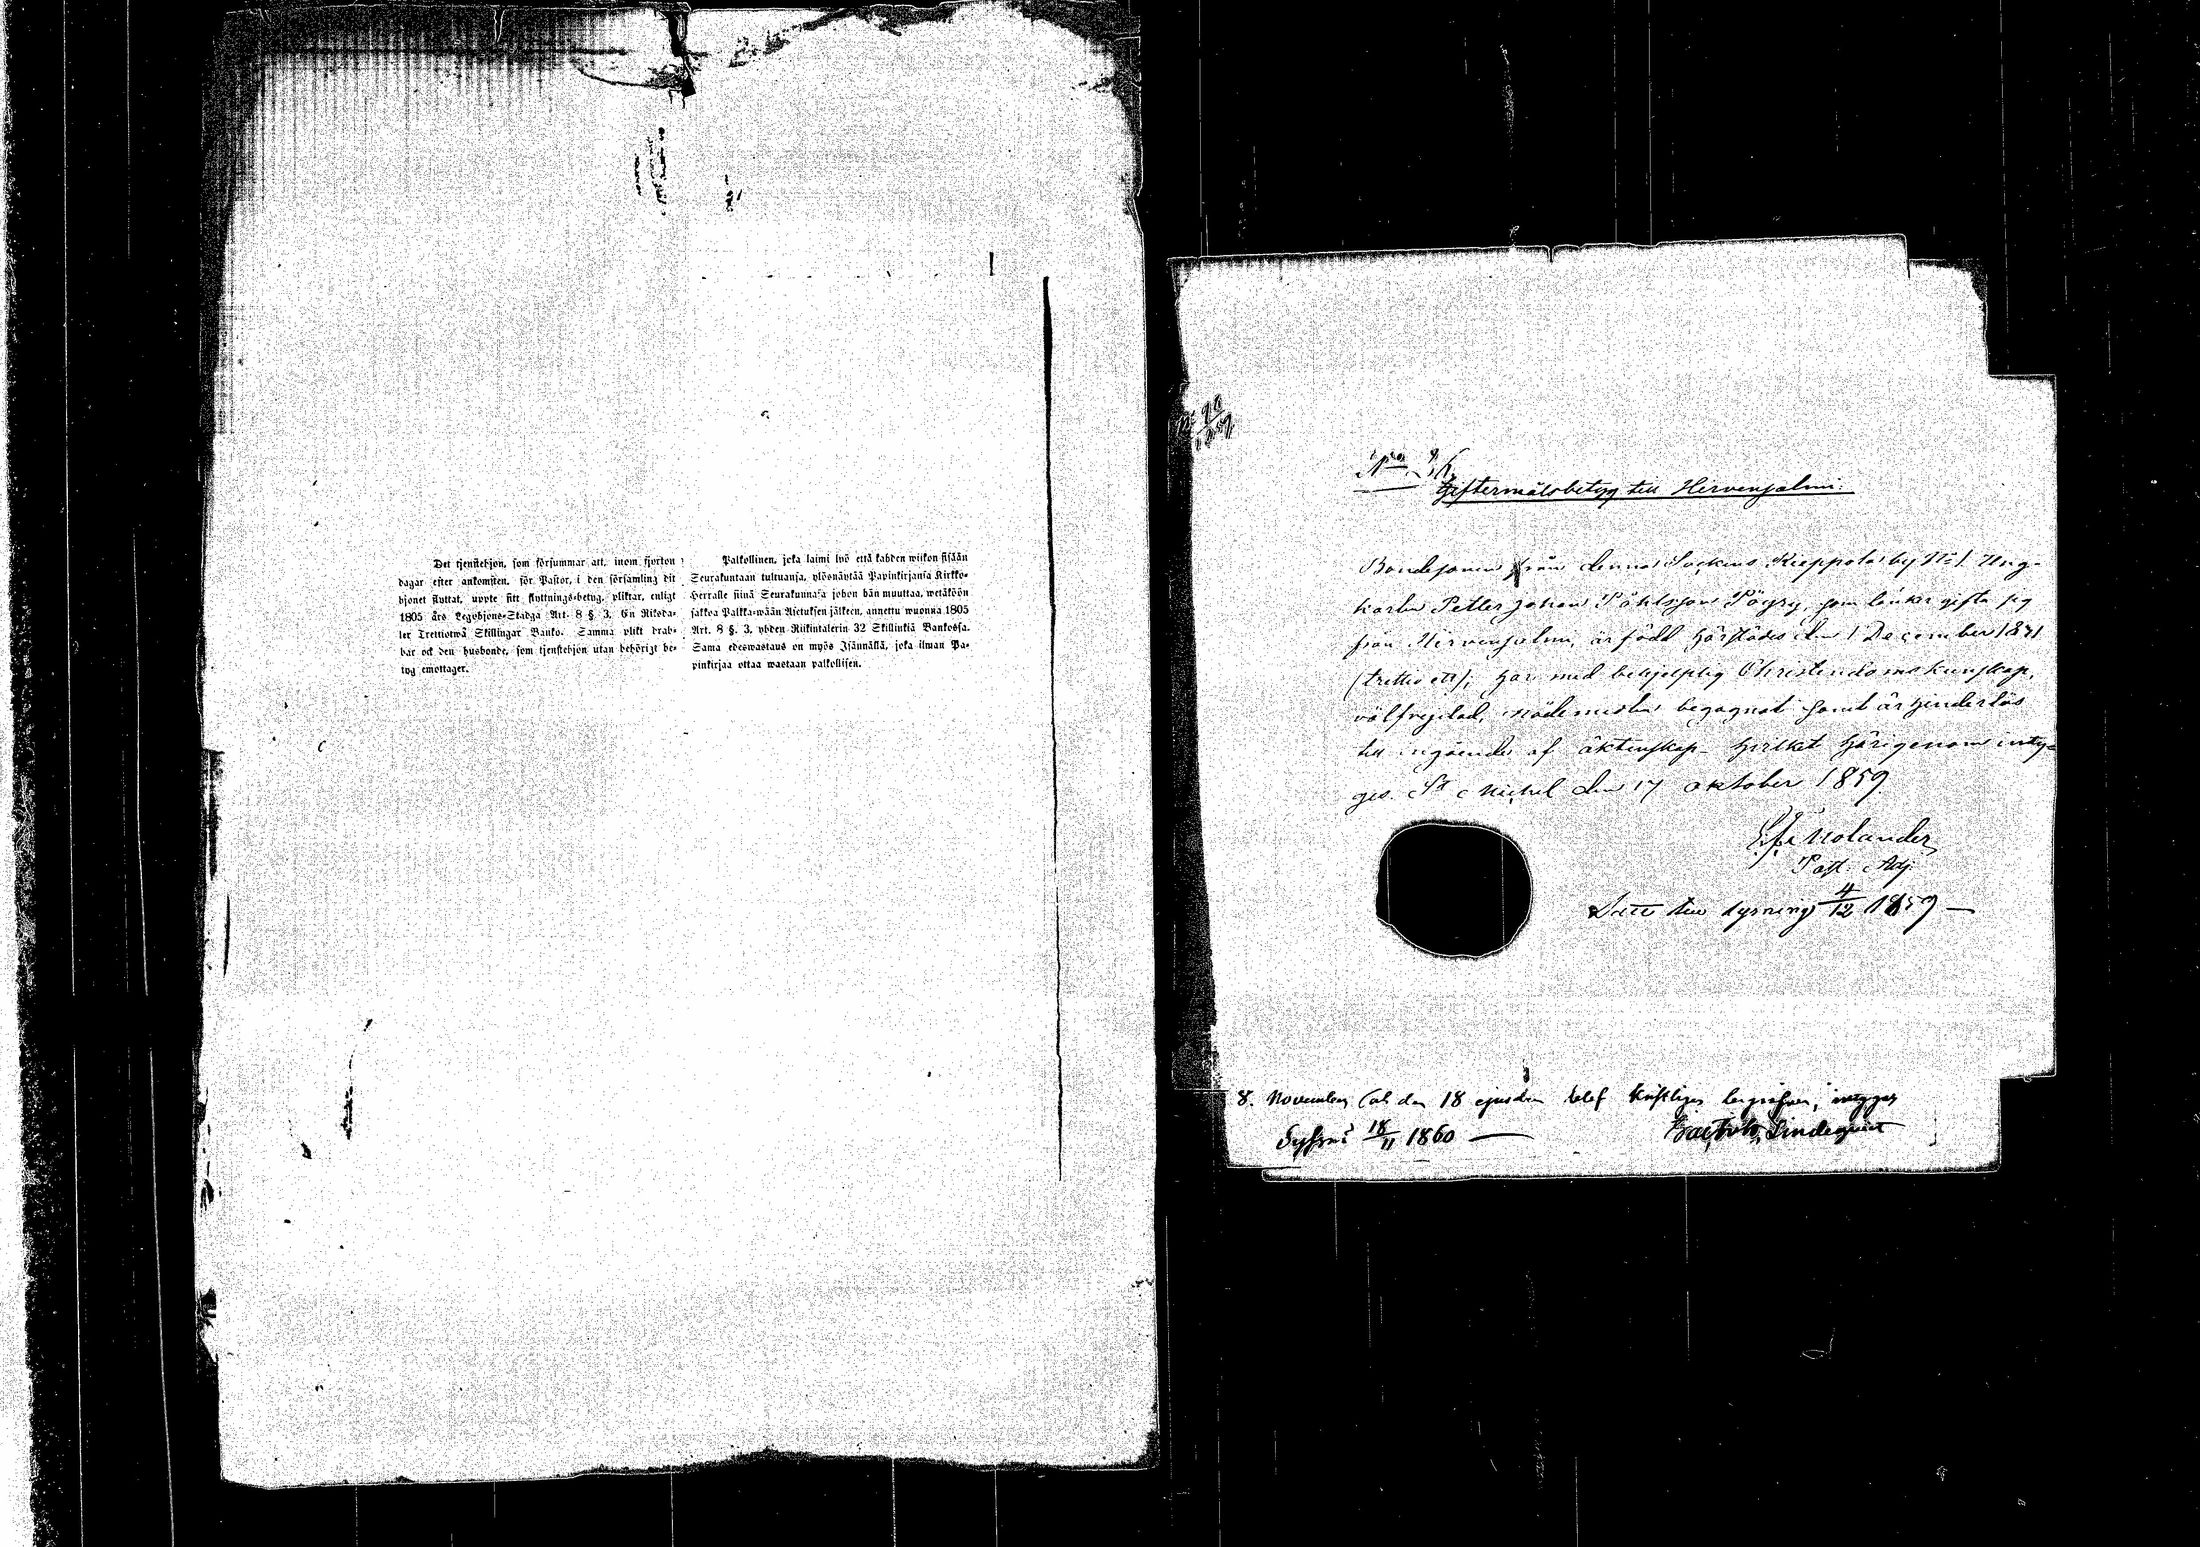 Det tjenstehjon, som försummar att, inom fjorton
dagar efter ankomsten, för Pastor, i den församling dit
hjonet flyttat, uppte sitt flyttnings-betyg, pliktar, enligt
1805 års Legohjons-Stadga Art. 8 §. 3, En Riksda-
ler Trettiotwå Skillingar Banko. Samma plikt drab-
bar ock den husbonde, som tjenstehjon utan behörigt be-
tyg emottager.
Palkollinen, joka laimi lyö että kahden wiikon sisään
Seurakuntaan tultuansa, ylösnäyttää Papinkirjansa Kirkko-
Herralle siinä Seurakunnasa johon hän muuttaa, wetäköön
sakkoa Palkka-wään Asetuksen jälkeen, annettu wuonna 1805
Art. 8 §. 3, yhden Riikintalerin 32 Skillinkiä Bankossa.
Sama edeswastaus on myös Isännällä, joka ilman Pa-
pinkirjaa ottaa wastaan palkollisen.
Giftermålsbetyg till Hirvensalmi.
Bondesonen från denna Sockens Kieppola by No 1 Ung-
karlen Petter Johan Påhlsson Pöyry, som tänker gifta sig
från Hirvensalmi, är född härstädes den 1 December 1831
(trettio ett); har med behjelplig Christendoms kunskap,
välfrejdad, nådemedlen begagnat samt är hinderlös
till ingående af äktenskap hvilket härigenom inty-
gas. St Michel den 17 Oktober 1859.
Molander
Past. Adj.
Datt till lysning 4/12 1859
8. November och den 18 ejusdem blef kristligen begrafven, intygar
Sysmä 18/11 1860 Lindequist